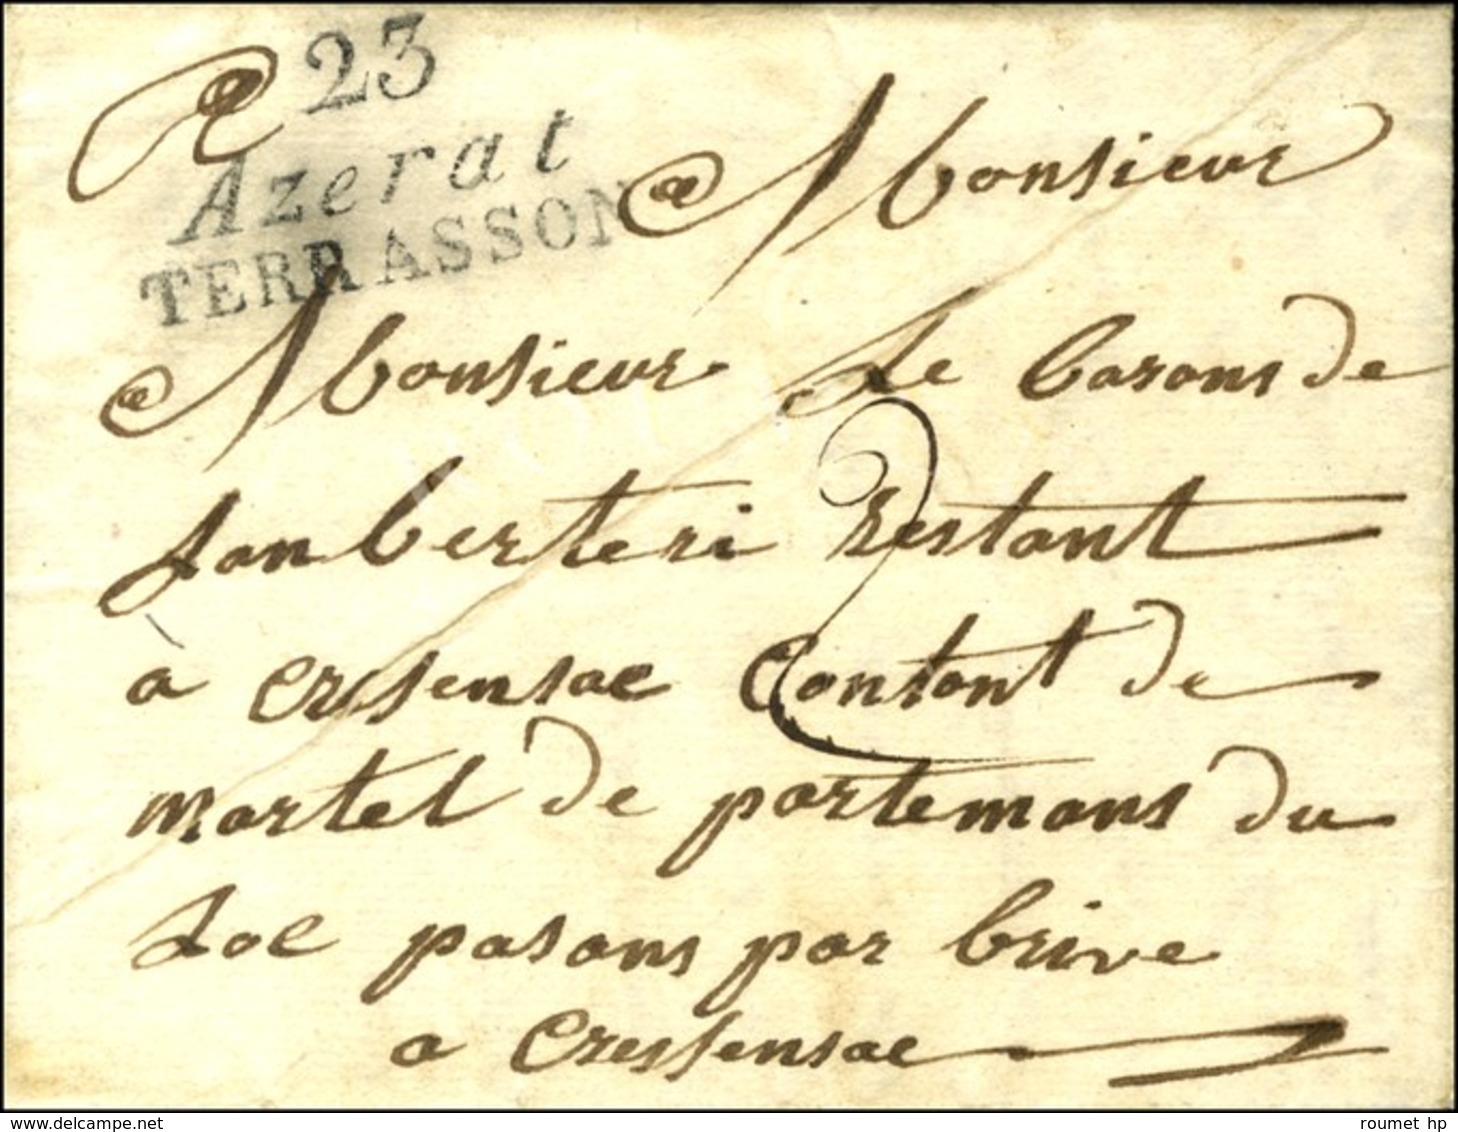 23
Azerat
TERRASSON
a Monsieur
Monsieur Le barons de
Janberteri restant
à cressensac Contont de
martel de portemans du
Loc pasans par brive
a Cressensac
roumet hp